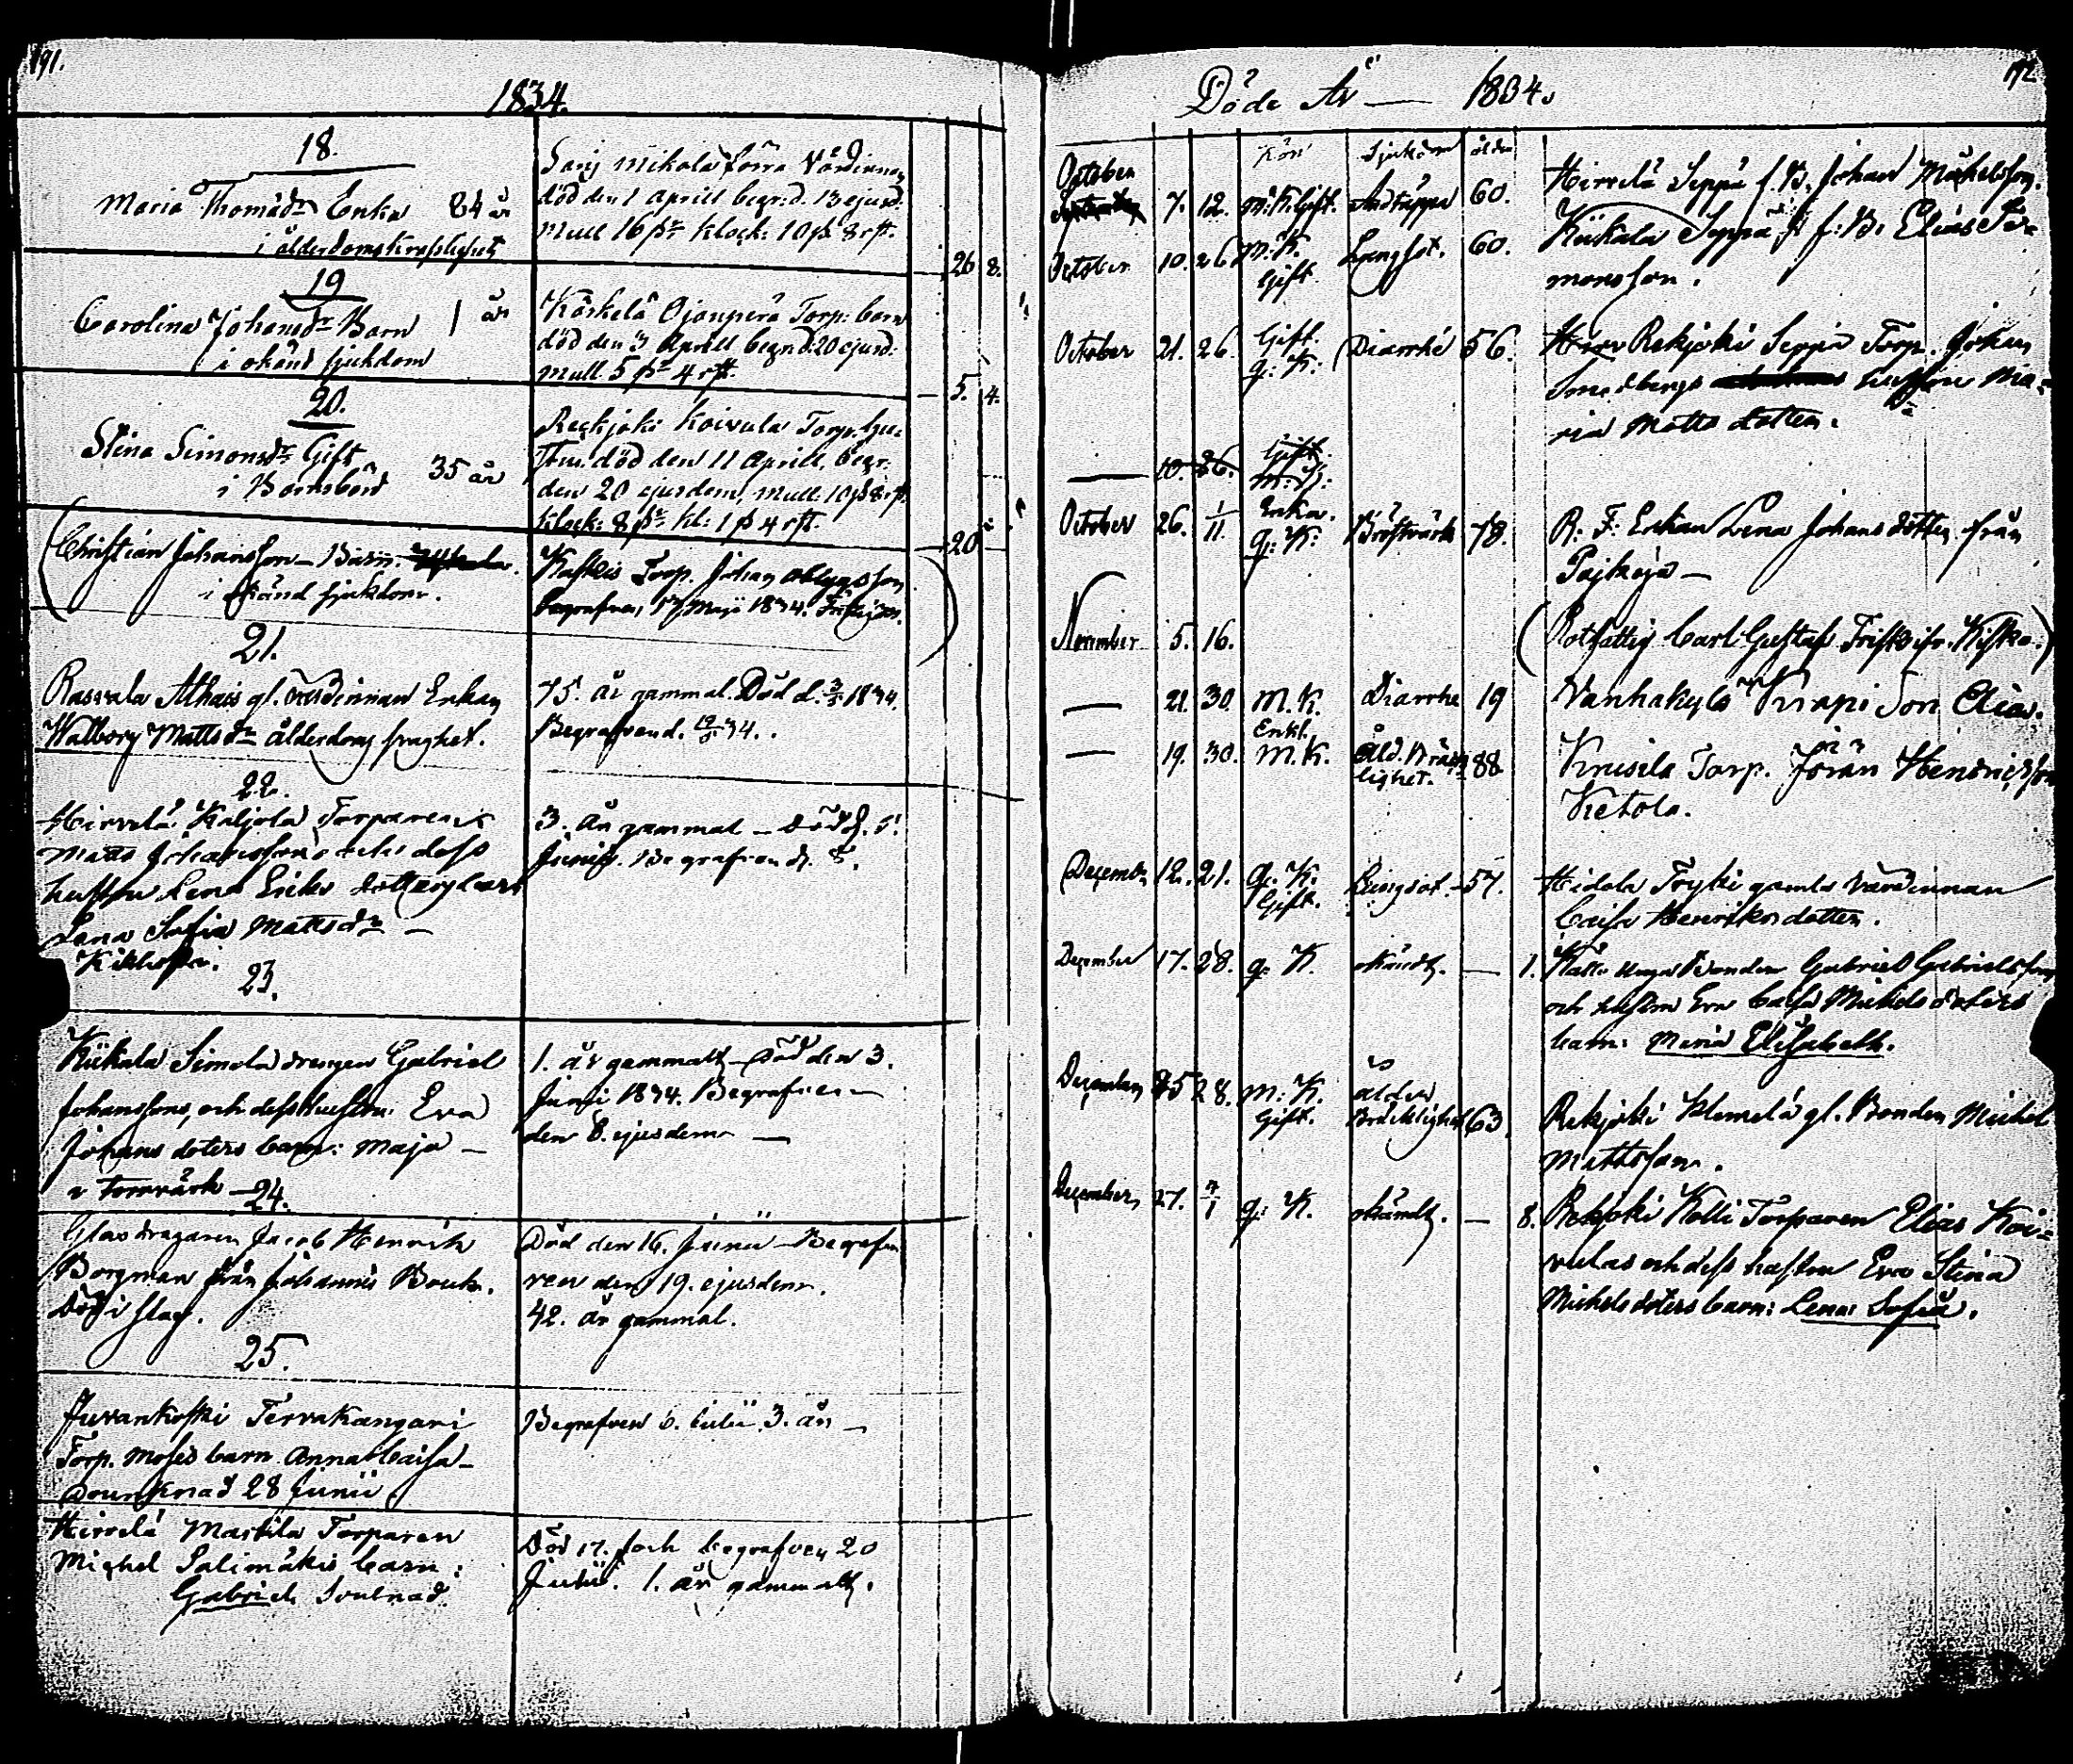 191.
1834.
18.
Maria Thomædr Enka 84 år
i ålderdoms kraslighet
Mikola förra Värdinnan
död den 1 Aprill begr: d. 13 ejusd:
Mull 16 ßr klock: 10 ß 8 rst.
26 8.
19
Carolina Johansdr Barn 1 år
i okänd sjukdom
Köskelä Ojanperä Torp: barn
död den 3 Aprill begr: d: 20 ejusd:
mull 5 ßr 4 rst.
5. 4.
20.
Stina Simonsdr Gift
i Barnsbörd 35 år
Reckjoki Koivula Torp. hu-
stru. död den 11 Aprill, begr:
den 20 ejusdem, mull. 10 ß 8 rst.
klock: 8 ßr kl: 1 ß 4 rst.
20
(Christian Johansson Barn.
i okänd sjukdom.
Torp. Johan
begrafven, 17 Maji 1834.
21.
Rasvala Alhais gl. värdinnan Enkan
Walborg Mattsdr ålderdoms svaghet.
75. år gammal. Död d. 1834.
Begrafven d. 34.
22.
Hirvelä Kaljola Torparens
Matts Johanssons och dess
hustru Lena Eriks dotters barn
Lena Sofia Mattsdr —
Kikhosta.
3. år gammal — död d. 1.
Junii. Begrafven d. 8.
23.
Kiikala Simola drengen Gabriel
Johanssons, och dess hustru Eva
Johans doters barn: Maja —
Torrvärk
1. år gammalt — Död den 3.
Junii 1834. Begrafven
den 8. ejusdem —
24.
Glasdragaren Jacob Henrik
Borgman från Johannis Bruk.
Död i slag.
Död den 16. Junii — Begraf
ven den 19. ejusdem.
42. år gammal.
25.
Juvankoski Tervakangari
Torp. Moses barn Anna Caisa —
Drunknad 28 Junii
Begrafven 6. Julii 3. år —
Hirvelä Markila Torparen
Michel Salimäkis barn:
Gabriel. Svulnad.
Död 17. och begrafven 20
Julii. 1. år gammalt.
172
Döde År — 1834.
Kön Sjukdom ålder
October 7. 12. m: K. Gift. Andtäppa 60. Hirvelä Seppä f. B. Johan Michelsson.
October 10. 26 m: K. Gift. Lungsot. 60. Kiikala Seppä f: B. Elias Si-
monsson.
October 21. 26. Gift. q: K: Diarrhé 56. Rekjoki Seppä Torp. Johan
Smedbergs hustru Ma-
ria Matts dotter.
— 10. 26. Gift. m: K:
October 26. 1/11. Enka. q: K: Bröstvärk 78. R: F: Enkan Lena Johans dotter från
Pajkoja —
November 5. 16. (Rotfattig Carl Gustaf Frisk ifr. Kisko.)
— 21. 30. M. K. Diarrhe 19 Vanhakylä Knapi Son Elias.
— 19. 30. Enkl. M. K. Åld. Bräck-
lighet. 88 Kruisila Torp. Jöran Henricsson
Ketola.
December 12. 21. q: K: Gift. Lungsot. 57. Hidola Tryki gamla värdinnan
Caisa Henriks dotter.
December 17. 28. q: K. okändt. — 1. Bonden Gabriel Gabrielsson
och hustrun Eva Caisa Michels doters
barn: Maria Elisabeth.
December 25 28. m: K. Gift. ålders
Bräcklighet 63. Rekjoki Klemelä gl. Bonden Michel
Mattsson.
December 27. 4/1 q: K. okändt. — 8. Rekjoki Kolli Torparen Elias Koi-
vulas och dess hustru Eva Stina
Michels doters barn: Lena Sofia.